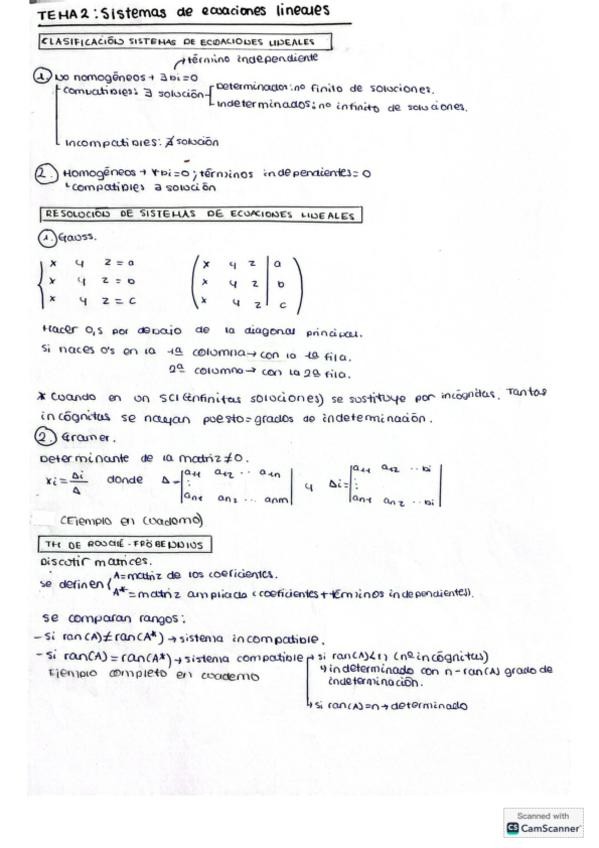 TEMA 2: Sistemas de ecuaciones lineales
CLASIFICACIÓN SISTEMAS DE ECUACIONES LINEALES
término independiente
1. No homogéneos → ∃ bi=0
Compatibles: ∃ solución
Determinados: nº finito de soluciones.
Indeterminados: nº infinito de soluciones.
Incompatibles: ∄ solución
2. Homogéneos → ∀ bi=0; términos independientes=0
↳ compatibles ∃ solución
RESOLUCIÓN DE SISTEMAS DE ECUACIONES LINEALES
1. Gauss.
x y z = a ( x y z | a )
x y z = b ( x y z | b )
x y z = c ( x y z | c )
Hacer 0,s por debajo de la diagonal principal.
Si haces 0's en la 1ª columna → con la 1ª fila.
2ª columna → con la 2ª fila.
* Cuando en un SCI (infinitas soluciones) se sustituye por incógnitas. Tantas
incógnitas se hayan puesto = grados de indeterminación.
2. Cramer.
Determinante de la matriz ≠ 0.
xi = Δi/Δ donde Δ = | a11 a12 .. a1n ⋮ an1 an2 ... anm | y Δi = | a11 a12 .. bi ⋮ an1 an2 .. bi |
(Ejemplo en cuaderno)
TH DE ROUCHÉ - FRÖBENIUS
Discutir matrices.
se definen { A = matriz de los coeficientes.
A* = matriz ampliada (coeficientes + términos independientes).
se comparan rangos:
- Si ran(A) ≠ ran(A*) → sistema incompatible.
- Si ran(A) = ran(A*) → sistema compatible → si ran(A) < n (nº incógnitas)
↳ indeterminado con n - ran(A) grado de
indeterminación.
Ejemplo completo en cuaderno
↳ si ran(A) = n → determinado
Scanned with
CS CamScanner